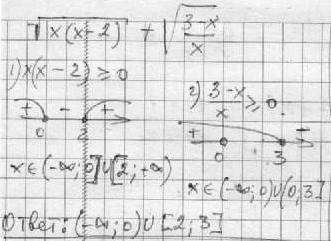 √x(x-2) + √(3-x)/x
1) x(x-2) ≥ 0
+ - +
0 2
x∈(-∞;0]∪[2;+∞)
2) (3-x)/x ≥ 0
+ -
0 3
x∈(-∞;0)∪(0;3]
Ответ: (-∞;0)∪[2;3]